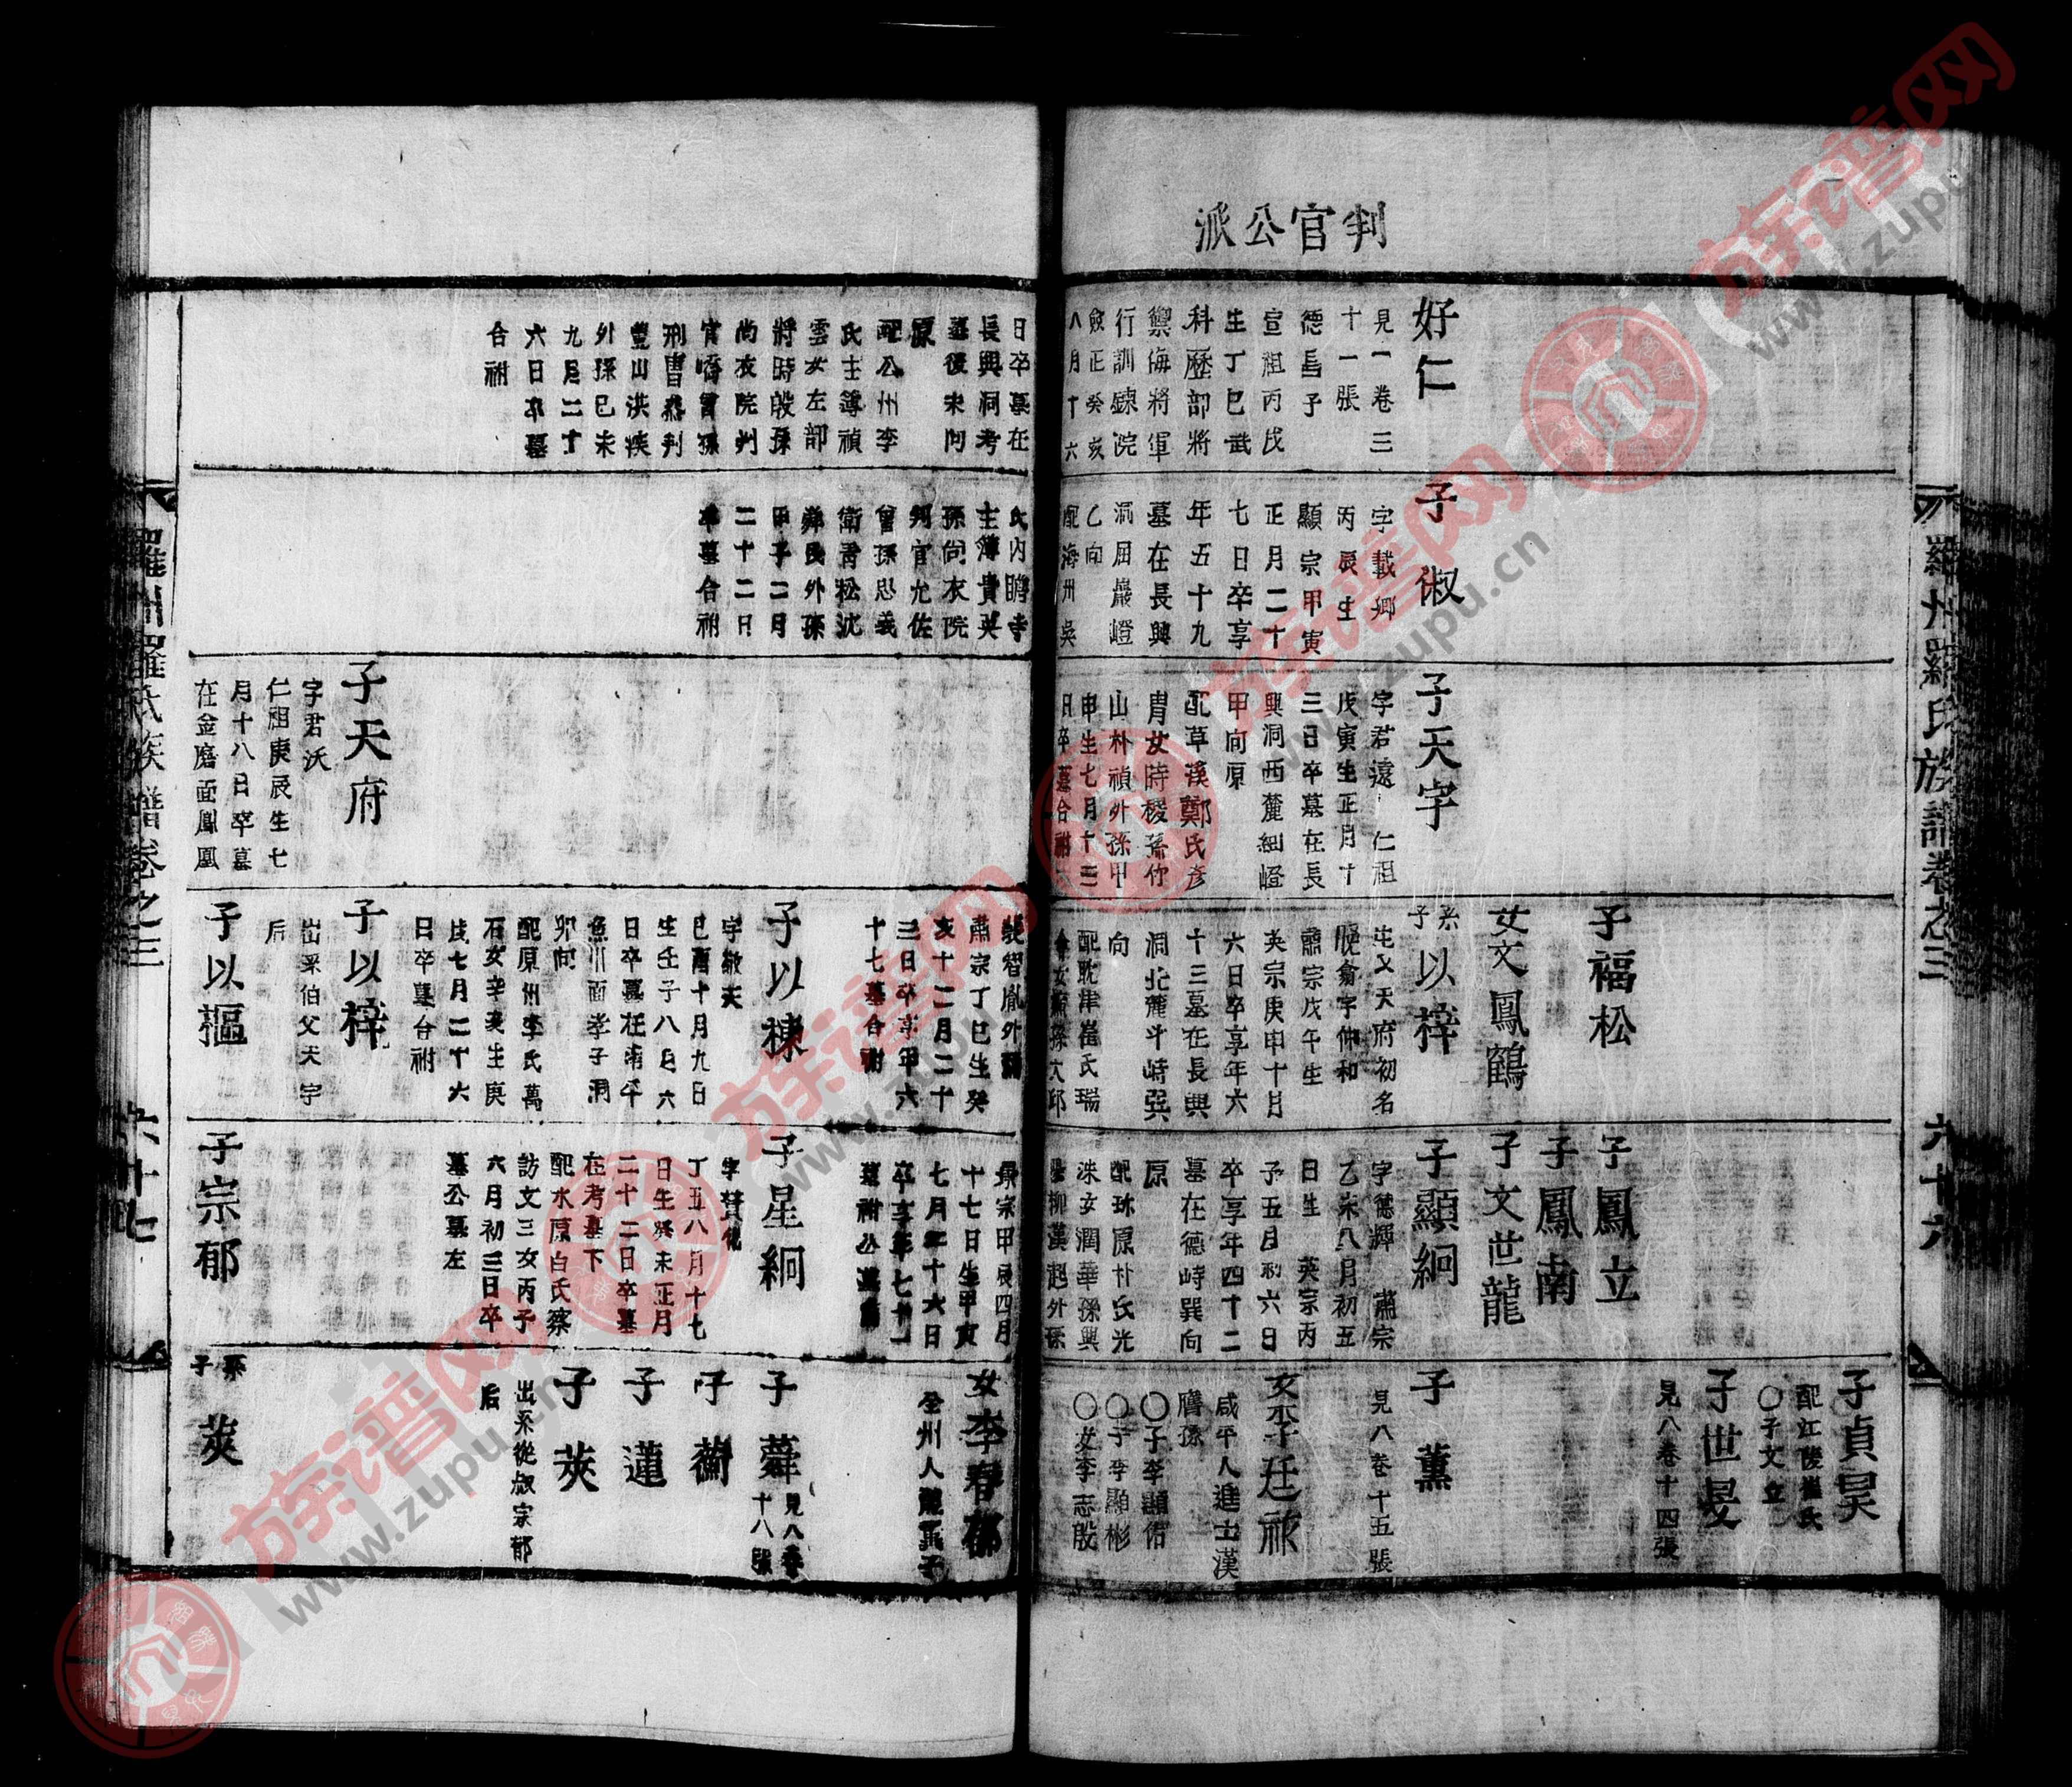 判官公派
羅州羅氏族譜卷之三
六十六
好仁
見一卷三
十一張
德昌子
宣祖丙戌
生丁巳武
科歷部將
禦侮將軍
行訓鍊院
僉正癸亥
八月十六
子 俶
字載卿
丙辰生
顯宗甲寅
正月二十
七日卒享
年五十九
墓在長興
洞屈巖嶝
乙向
配海州吳
子天宇
字君遠 仁祖
戊寅生正月十
三日卒墓在長
興洞西麓細嶝
甲向原
配草溪鄭氏彦
胄女時稷孫竹
山朴禎外孫甲
申生七月十三
日卒墓合祔
子福松
女文鳳鶴
系子以梓
生父天府初名
晚龠字仲和
肅宗戊午生
英宗庚申十月
六日卒享年六
十三墓在長興
洞北麓斗峙巽
向
配耽津崔氏瑞
子鳳立
子鳳南
子文世龍
子顯絅
字德輝 肅宗
乙未八月初五
日生 英宗丙
子五月初六日
卒享年四十二
墓在德峙巽向
原
配珎原朴氏光
洙女潤華孫興
陽柳漢起外孫
子貞昊
配江陵崔氏
○子文立
子世旻
見八卷十四張
子 薰
見八卷十五張
女李廷祿
咸平人進士漢
膺孫
○子李顯佑
○子李顯彬
○女李志殷
日卒墓在
長興洞考
墓後未向
原
配公州李
氏主簿禎
雲女左部
將時殷孫
尚衣院判
官嶠曾孫
刑曹參判
豐山洪瑛
外孫己未
九月二十
六日卒墓
合祔
氏內贍寺
主簿貴英
孫尚衣院
判官允佐
曾孫忠義
衛青松沈
舜民外孫
甲子二月
二十二日
卒墓合祔
子天府
字君沃
仁祖庚辰生七
月十八日卒墓
在金磨面鳳凰
肅宗丁巳生癸
亥十二月二十
三日卒享年六
十七墓合祔
子以棟
字敬天
己酉十月九日
生壬子八月六
日卒墓在南平
魚川面孝子洞
卯向
配原州李氏萬
石女辛亥生庚
戌七月二十六
日卒墓合祔
子以梓
出系伯父天宇
后
子以樞
景宗甲辰四月
十七日生甲寅
七月十六日
卒享年七十一
墓祔公墓前
子星絅
字贊化
丁丑八月十七
日生癸未正月
二十二日卒墓
在考墓下
配水原白氏蔡
訪文三女丙子
六月初三日卒
墓公墓左
子宗郁
女李春郁
全州人
子 蕣
見八卷
十八張
子 蘅
子 蓮
子 莢
出系從叔宗郁
后
系子 莢
羅州羅氏族譜卷之三
六十七